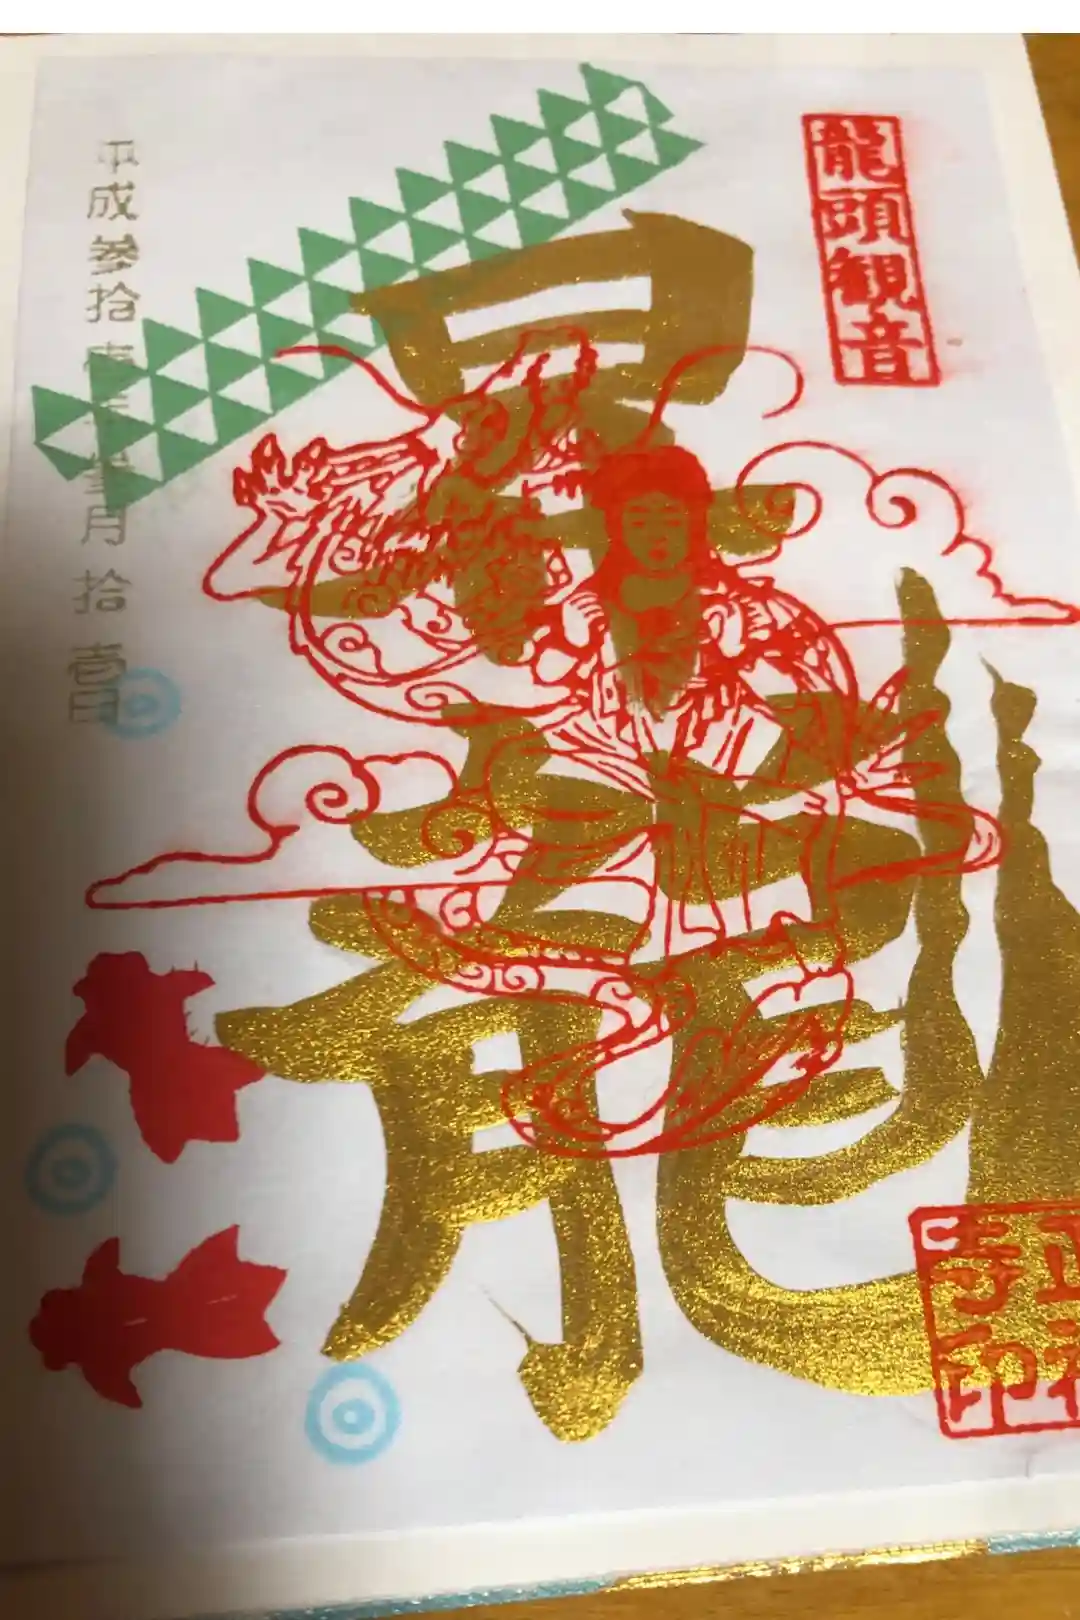 龍頭観音
昇龍
平成参拾壱年参月拾壱日
正
寺印